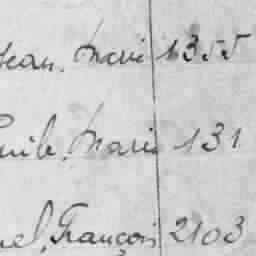 Jean, Marie 1355
Emile, Marie 131
el, François 2103